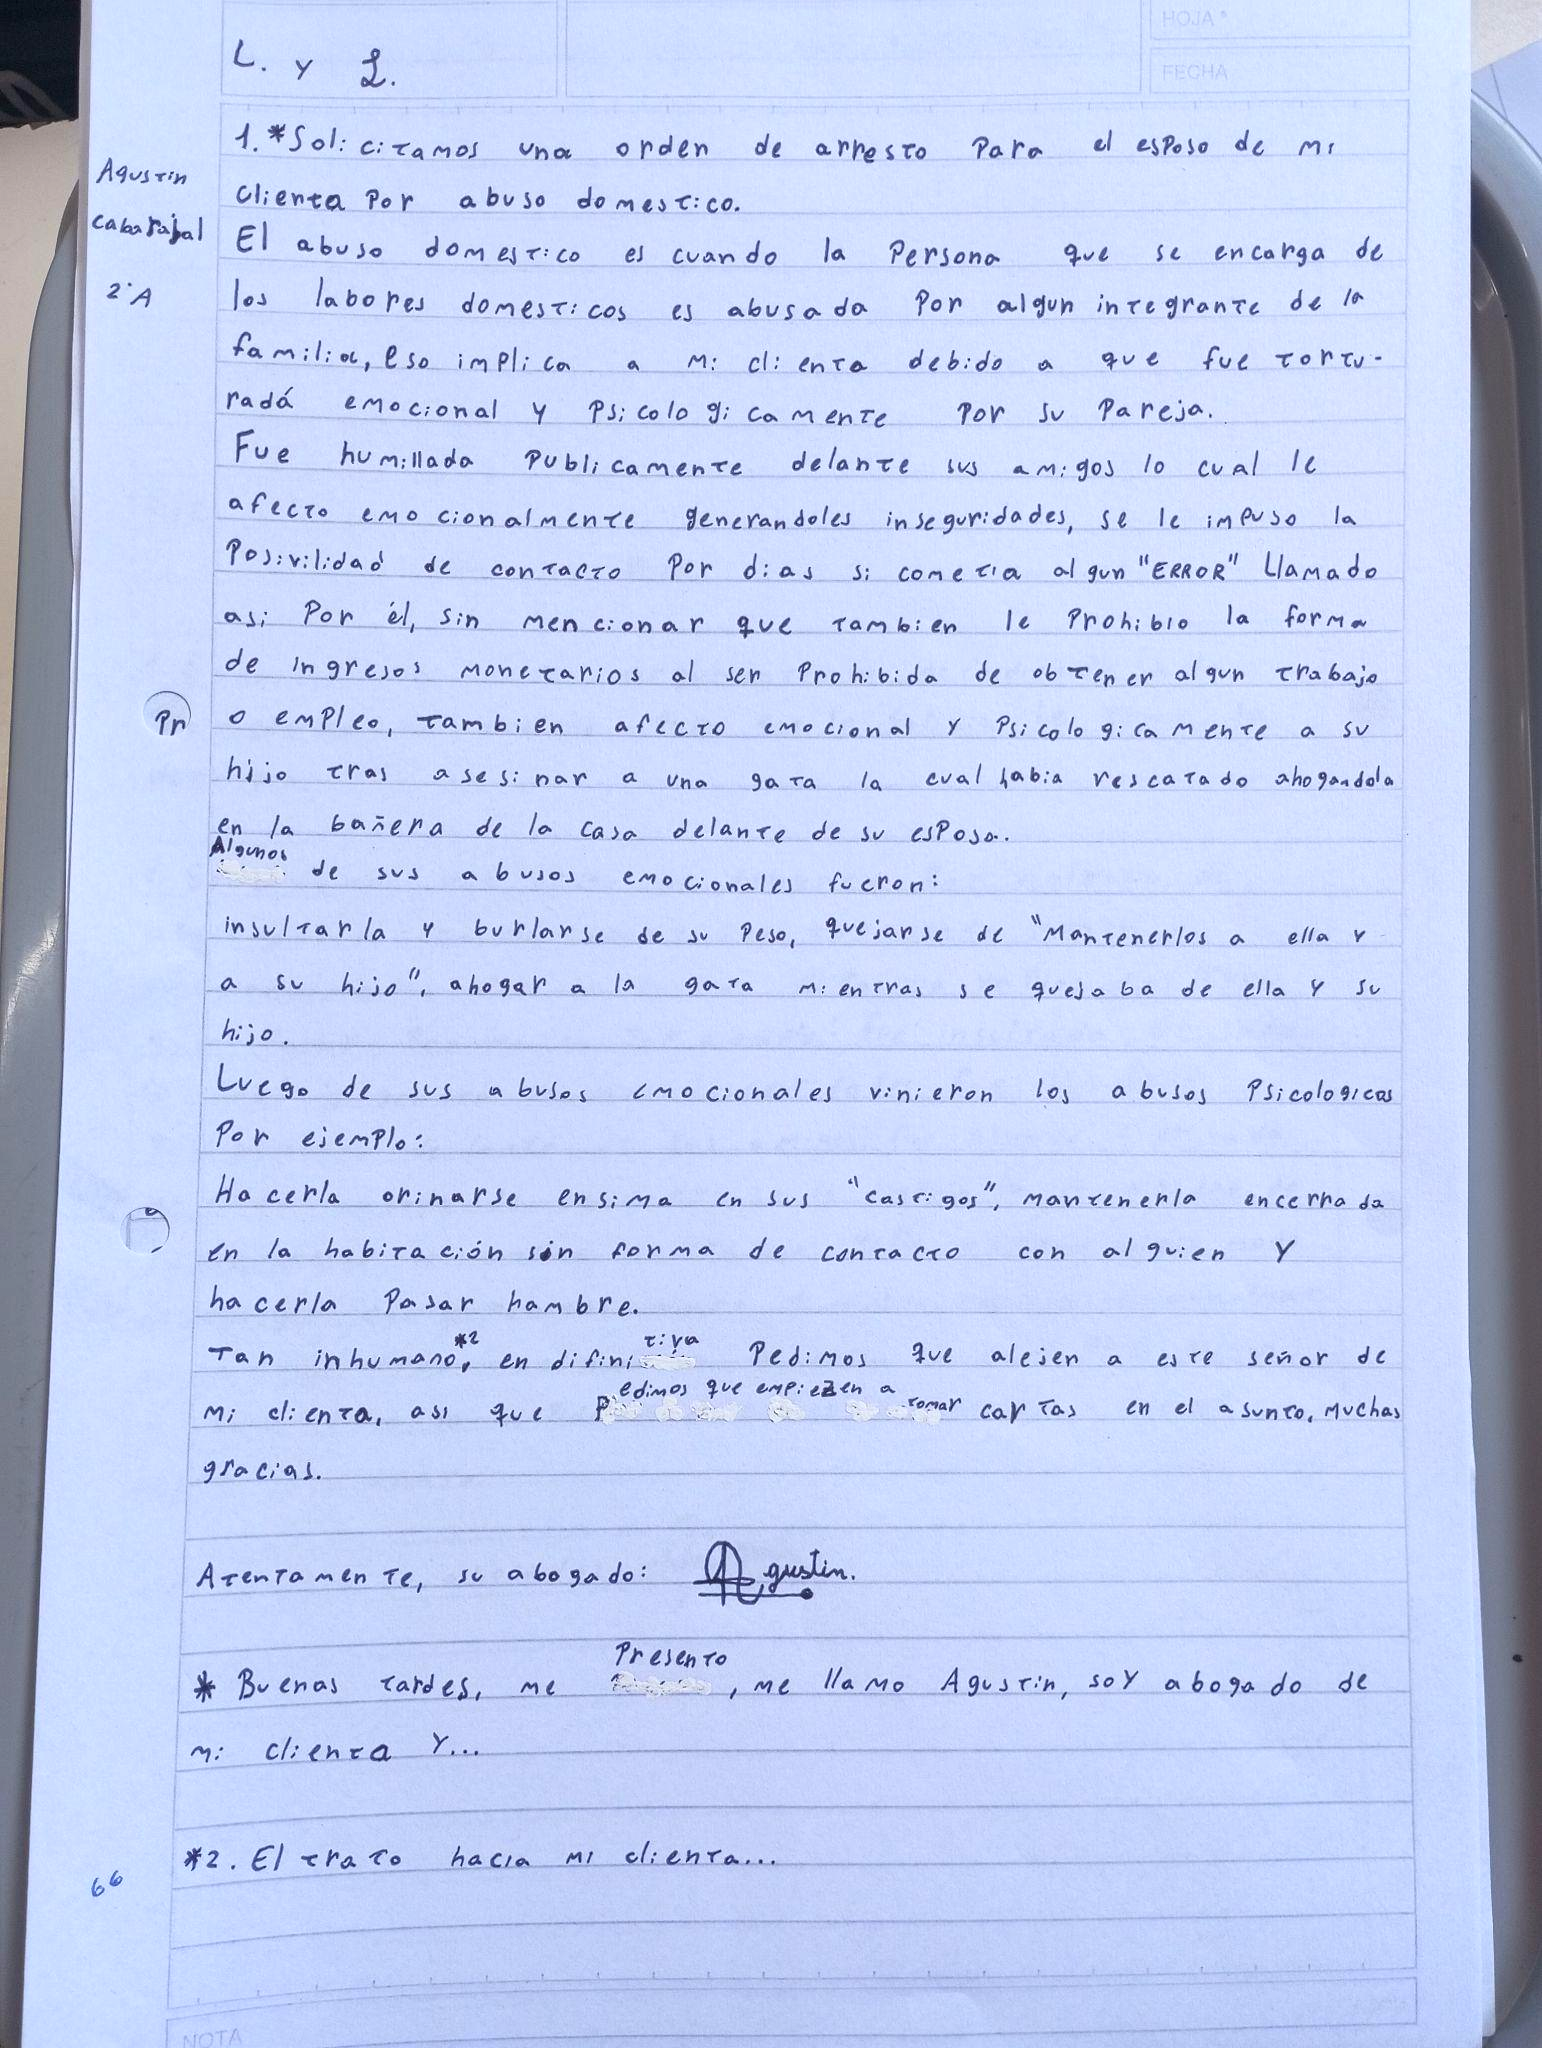 HOJA °
FECHA
L. y L.
Agustin
cabarajal
2°A
1.*Solicitamos una orden de arresto Para el esposo de mi
clienta Por abuso domestico.
El abuso domestico es cuando la Persona que se encarga de
los labores domesticos es abusada Por algun integrante de la
familia, Eso implica a mi clienta debido a que fue tortu-
radá emocional y Psicologicamente Por su Pareja.
Fue humillada Publicamente delante sus amigos lo cual le
afecto emocionalmente generandoles inseguridades, se le impuso la
Posivilidad de contacto Por dias si cometia algun "ERROR" Llamado
asi Por él, sin mencionar que tambien le Prohibio la forma
de ingresos monetarios al ser Prohibida de obtener algun trabajo
o empleo, tambien afecto emocional y Psicologicamente a su
Pr
hijo tras asesinar a una gata la cual habia rescatado ahogandola
en la bañera de la casa delante de su esposa.
Algunos
de sus abusos emocionales fueron:
insultarla y burlarse de su Peso, quejarse de "Mantenerlos a ella y
a su hijo", ahogar a la gata mientras se quejaba de ella y su
hijo.
Luego de sus abusos emocionales vinieron los abusos Psicologicos
Por ejemplo:
Hacerla orinarse ensima en sus "castigos", mantenerla encerrada
en la habitación sin forma de contacto con alguien Y
hacerla Pasar hambre.
Tan inhumano,*2 en difinitiva Pedimos que alejen a este señor de
mi clienta, asi que Pedimos que empiezen a tomar cartas en el asunto, muchas
gracias.
Atentamente, su abogado: Agustin.
* Buenas tardes, me Presento, me llamo Agustin, soy abogado de
mi clienta Y...
*2. El trato hacia mi clienta...
66
NOTA